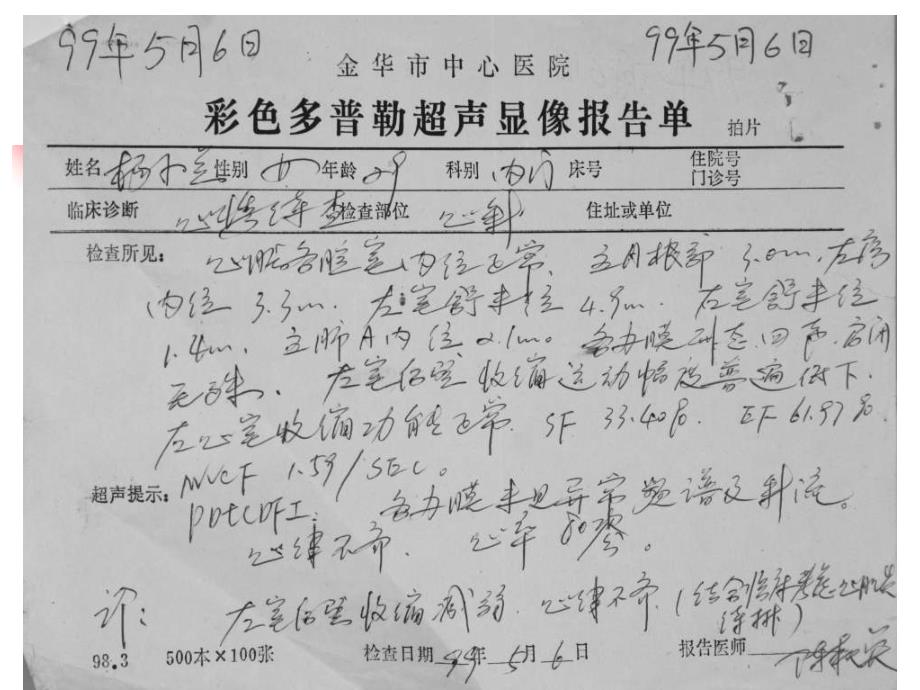 99年5月6日 99年5月6日
金华市中心医院
彩色多普勒超声显像报告单 拍片
姓名 杨小兰 性别 女 年龄 29 科别 内门 床号 住院号
门诊号
临床诊断 复查 检查部位 心超 住址或单位
检查所见: 心脏各腔室内径正常. 主A根部 3.0cm, 左房
内径 3.3cm. 左室舒末径 4.9cm. 左室舒末径
1.4cm, 主肺A内径 2.1cm。各瓣膜形态.回声.启闭
无殊. 左室后壁收缩运动幅度普遍低下.
左心室收缩功能正常. SF 33.40%. EF 61.97%.
MVCF 1.59/SEC。
超声提示: PDECDFI: 各瓣膜未见异常频谱及射流。
心律不齐. 心率80次。
诊: 左室后壁收缩减弱. 心律不齐.(结合临床考虑心肌炎
待排)
98.3 500本×100张 检查日期 99年5月6日 报告医师